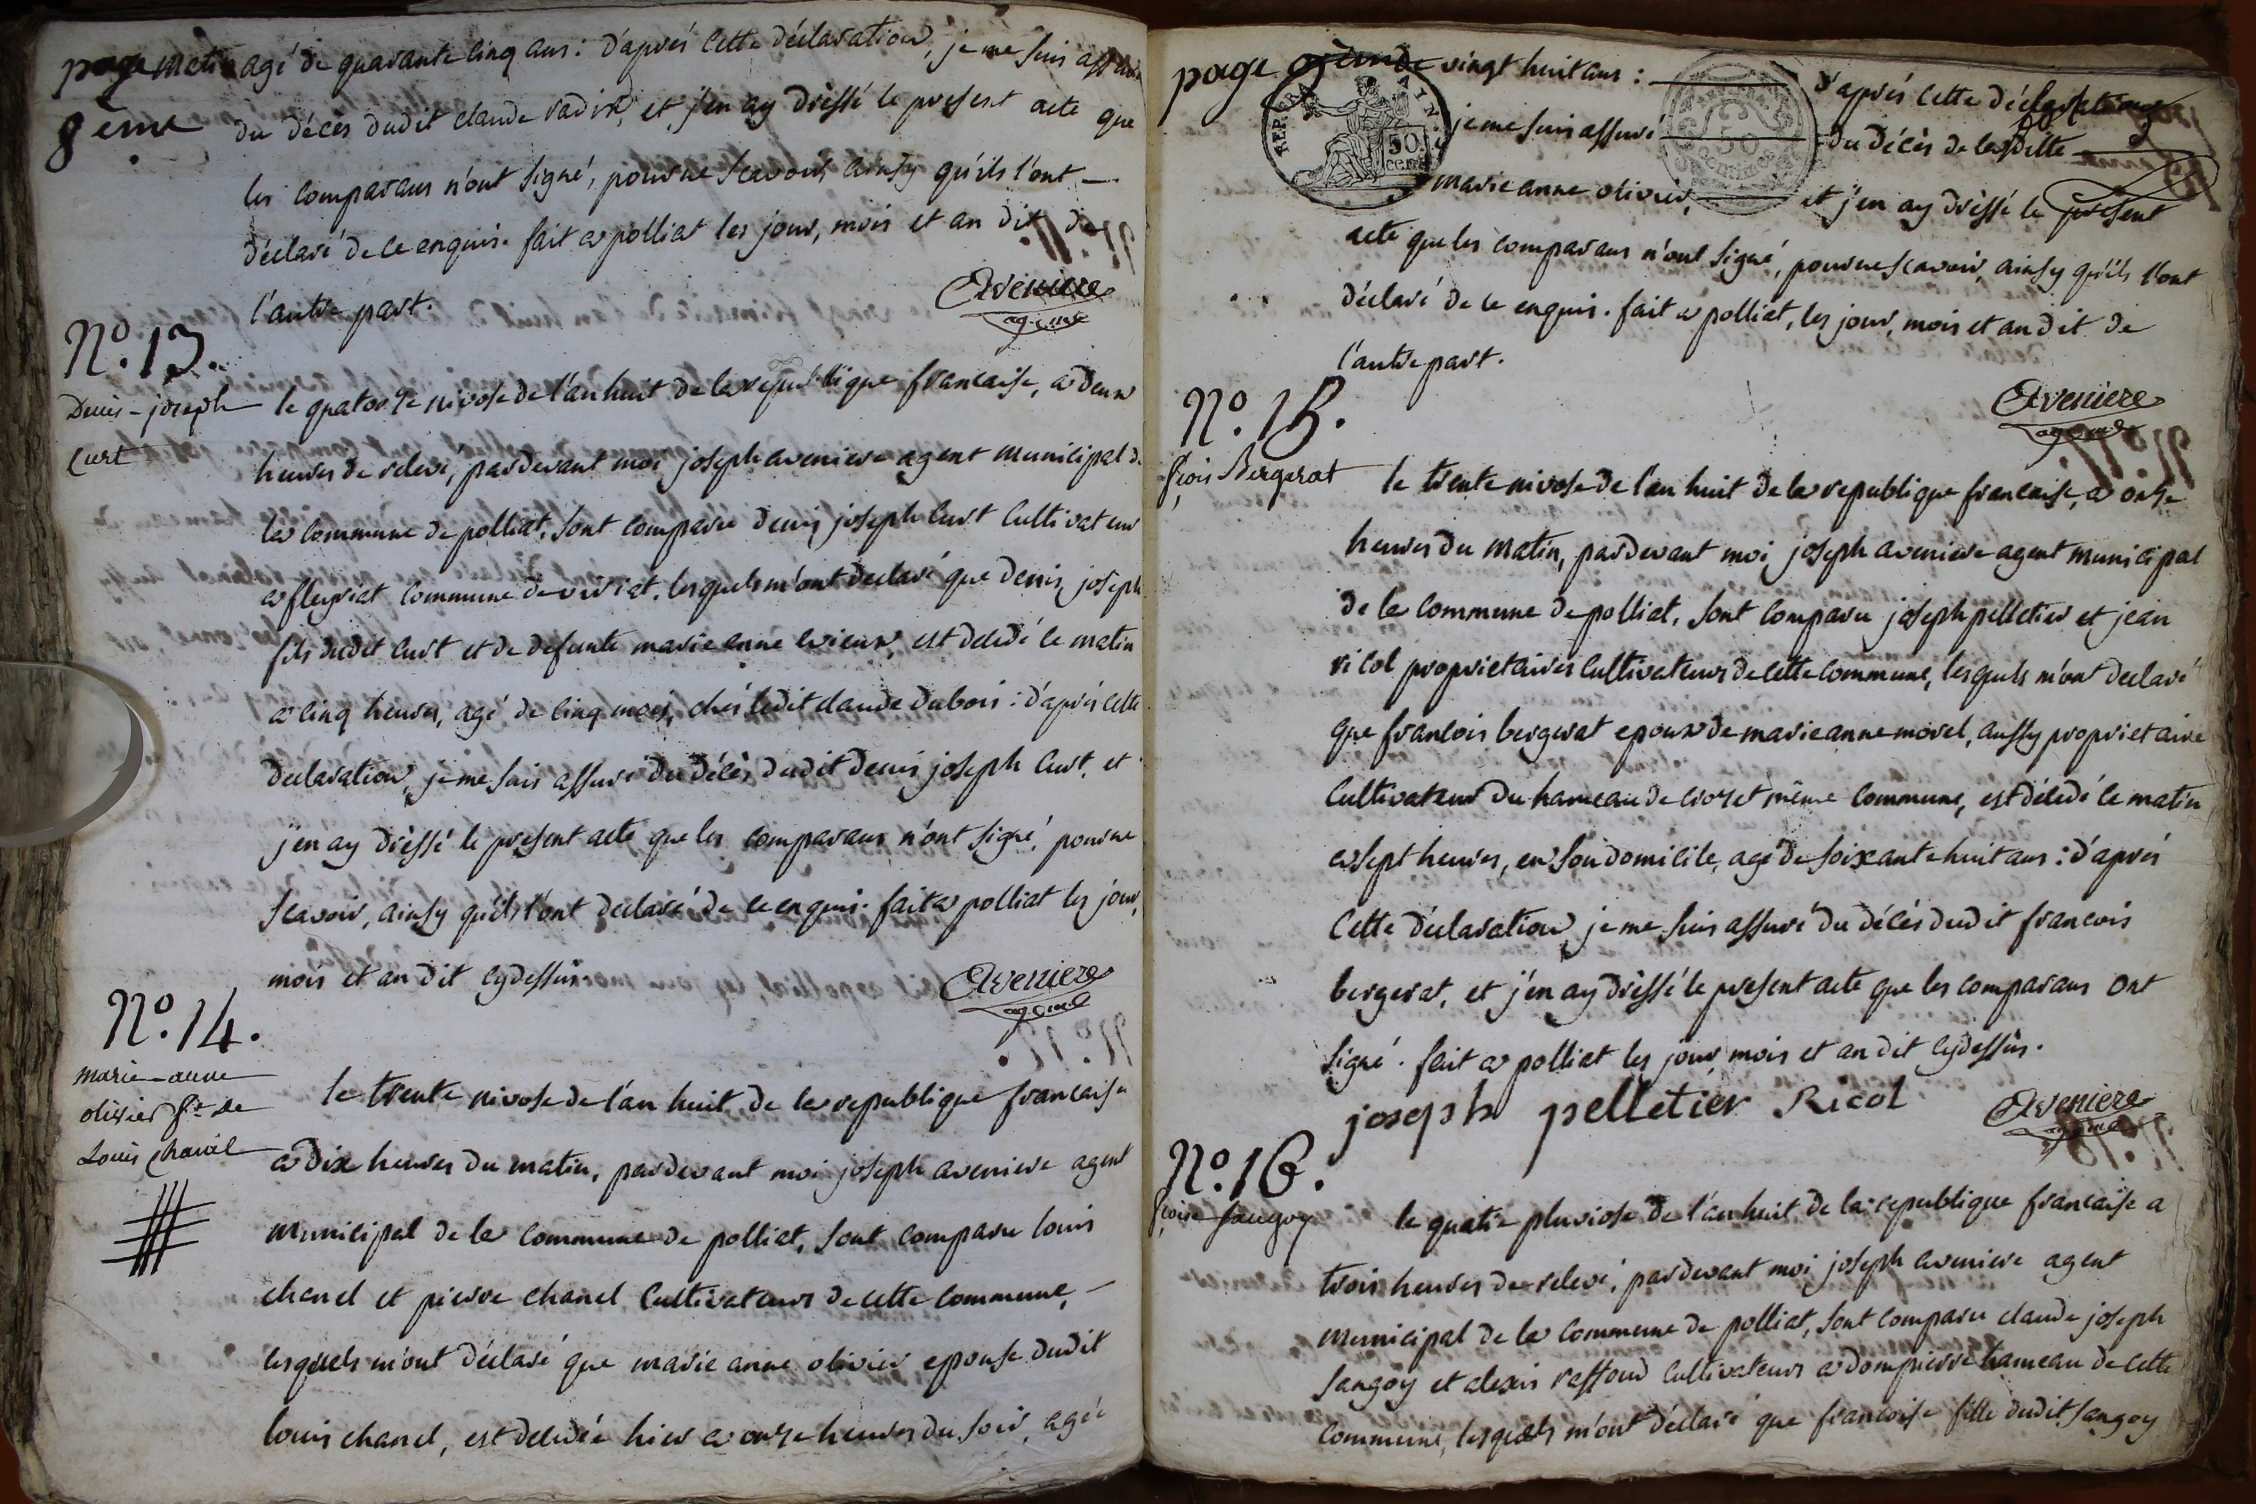 page 8ème
matin agé de quarante cinq ans : d'aprés cette déclaration, je me suis assuré
du décès dudit claude radix, et j'en ay dressé le present acte que
les comparans n'ont signé, pour ne scavoir ainsy qu'ils l'ont
déclaré de ce enquis. fait a polliat les jour, mois et an dit de
l'autre part.
Aveniere
ag. m.
N.º 13.
Denis-joseph
Curt
le quatorze nivose de l'an huit de la republique francaise, a deux
heures de relevé, pardevant moi joseph aveniere agent municipal de
la commune de polliat, sont comparu denis joseph Curt Cultivateur
a fleyriat commune de viriat, lesquels m'ont declaré que denis joseph
fils dudit Curt et de defunte marie anne vieux, est decedé ce matin
a cinq heures, agé de cinq mois, chés ledit claude dubois : d'aprés cette
declaration, je me suis assuré du décès dudit denis joseph Curt, et
j'en ay dressé le present acte que les comparans n'ont signé, pour ne
scavoir, ainsy qu'ils l'ont declaré de ce enquis. fait a polliat les jour,
mois et an dit cydessus.
Aveniere
ag. m.
N.º 14.
marie-anne
olivier fe de
Louis chanel
le trente nivose de l'an huit de la republique francaise
a dix heures du matin, pardevant moi joseph aveniere agent
municipal de la commune de polliat, sont comparu louis
chanel et pierre chanel Cultivateurs de cette commune,
lesquels m'ont déclaré que marie anne olivier epouse dudit
louis chanel, est decedée hier a onze heures du soir, agée
page 9ème
de vingt huit ans : d'aprés cette déclaration
je me suis assuré du décès de la ditte
marie anne olivier, et j'en ay dressé le present
REP. FRA.
50
cent.
50
centimes
acte que les comparans n'ont signé, pour ne scavoir, ainsy qu'ils l'ont
déclaré de ce enquis. fait a polliat, les jour, mois et an dit de
l'autre part.
Aveniere
ag. m.
N.º 15.
fçois Bergerat
le trente nivose de l'an huit de la republique francaise, a onze
heures du matin, pardevant moi joseph aveniere agent municipal
de la commune de polliat, sont comparu joseph pelletier et jean
ricol proprietaires Cultivateurs de cette commune, lesquels m'ont declaré
que francois bergerat epoux de marie anne morel, aussy proprietaire
Cultivateur du hameau de crozet même commune, est décedé ce matin
a sept heures, en son domicile, agé de soixante huit ans : d'aprés
Cette déclaration, je me suis assuré du décès dudit francois
bergerat, et j'en ay dressé le present acte que les comparans ont
signé. fait a polliat les jour, mois et an dit cydessus.
joseph pelletier Ricol
Aveniere
ag. m.
N.º 16.
fçoise Sangoy
le quatre pluviose de l'an huit de la republique francaise a
trois heures de relevé, pardevant moi joseph aveniere agent
municipal de la commune de polliat, sont comparu claude joseph
Sangoy et alexis raffoud Cultivateurs a dompierre hameau de cette
commune, lesquels m'ont déclaré que francoise fille dudit Sangoy